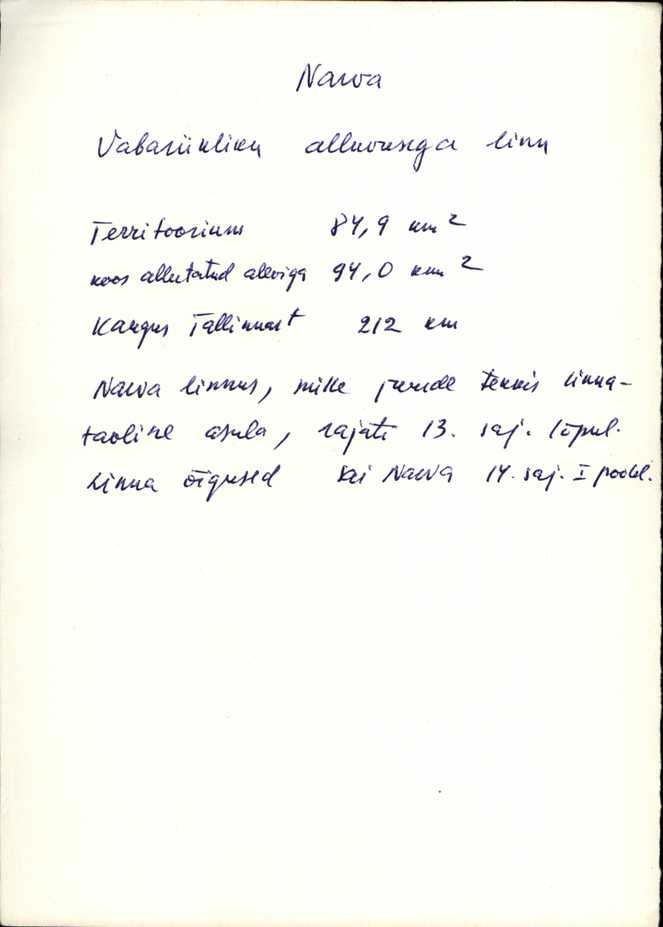 Narva
Vabariikliku alluvusega linn
Territoorium 84,9 km²
koos allutatud aleviga 94,0 km²
Kaugus Tallinnast 212 km
Narva linnus, mille juurde tekkis linna-
taoline asula, rajati 13. saj. lõpul.
Linna õigused sai Narva 14. saj. I poolel.